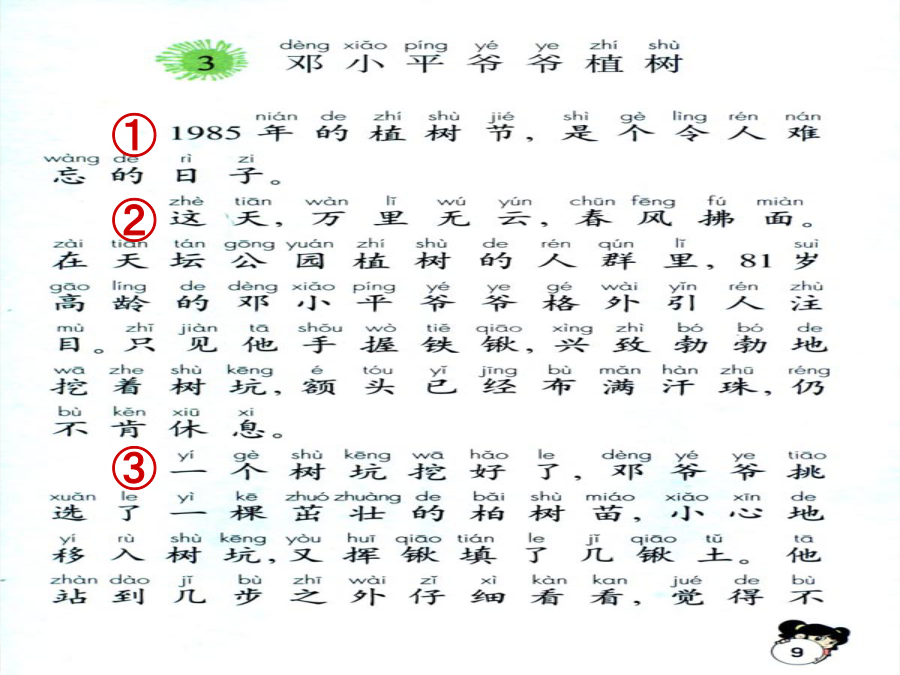 dèng xiǎo píng yé ye zhí shù
3 邓小平爷爷植树
nián de zhí shù jié shì gè lìng rén nán
① 1985 年的植树节，是个令人难
wàng de rì zi
忘的日子。
zhè tiān wàn lǐ wú yún chūn fēng fú miàn
② 这天，万里无云，春风拂面。
zài tiān tán gōng yuán zhí shù de rén qún lǐ suì
在天坛公园植树的人群里，81岁
gāo líng de dèng xiǎo píng yé ye gé wài yǐn rén zhù
高龄的邓小平爷爷格外引人注
mù zhǐ jiàn tā shǒu wò tiě qiāo xìng zhì bó bó de
目。只见他手握铁锹，兴致勃勃地
wā zhe shù kēng é tóu yǐ jīng bù mǎn hàn zhū réng
挖着树坑，额头已经布满汗珠，仍
bù kěn xiū xi
不肯休息。
yí gè shù kēng wā hǎo le dèng yé ye tiāo
③ 一个树坑挖好了，邓爷爷挑
xuǎn le yì kē zhuó zhuàng de bǎi shù miáo xiǎo xīn de
选了一棵茁壮的柏树苗，小心地
yí rù shù kēng yòu huī qiāo tián le jǐ qiāo tǔ tā
移入树坑，又挥锹填了几锹土。他
zhàn dào jǐ bù zhī wài zǐ xì kàn kan jué de bù
站到几步之外仔细看看，觉得不
9